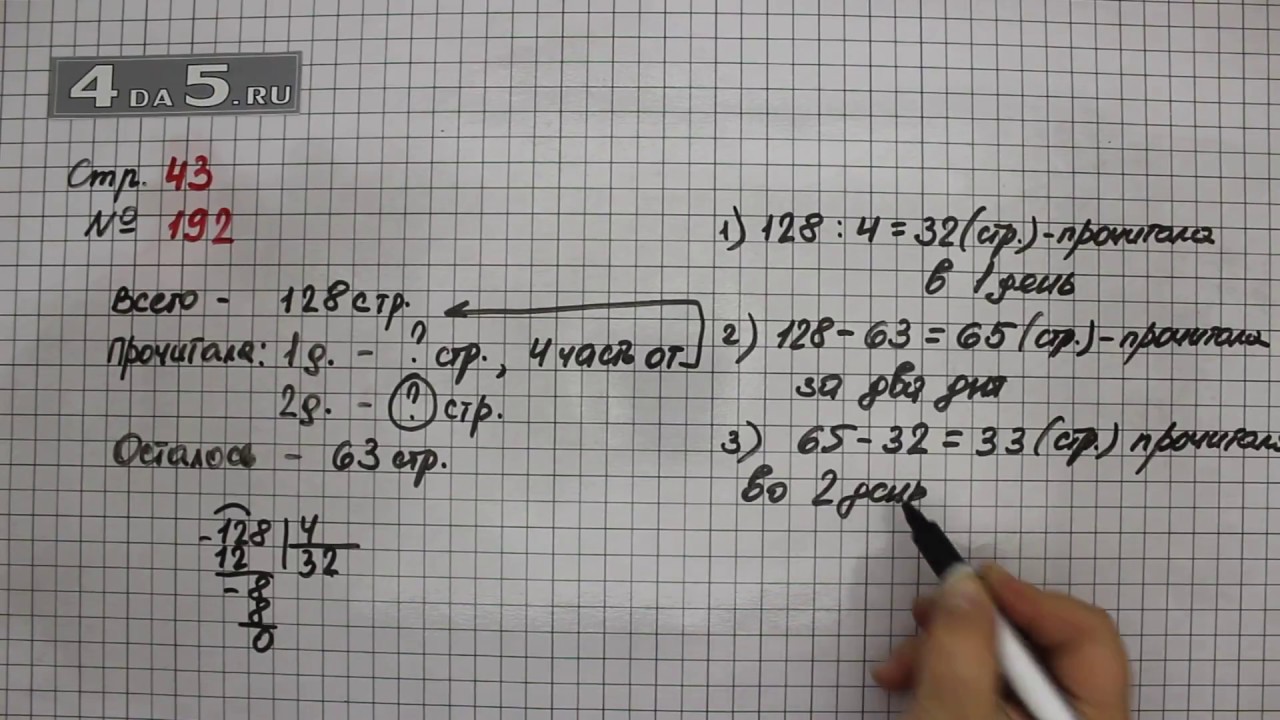 4DA5.RU
Стр. 43
№ 192
Всего - 128 стр.
Прочитала: 1д. - ? стр., 4 часть от
2д. - ? стр.
Осталось - 63 стр.
-128 4
12 32
-8
8
0
1) 128 : 4 = 32 (стр.) - прочитала
в 1 день
2) 128 - 63 = 65 (стр.) - прочитала
за два дня
3) 65 - 32 = 33 (стр.) прочитала
во 2 день